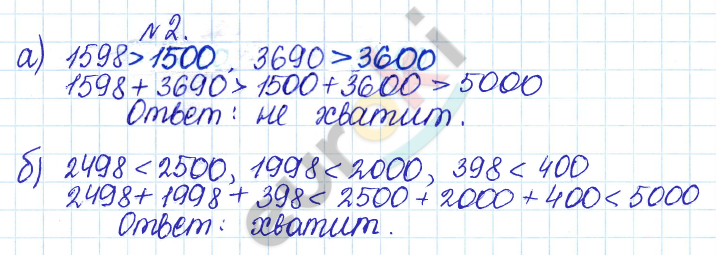 №2.
а) 1598>1500, 3690>3600
1598+3690>1500+3600>5000
Ответ: не хватит.
б) 2498<2500, 1998<2000, 398<400
2498+1998+398<2500+2000+400<5000
Ответ: хватит.
euroki